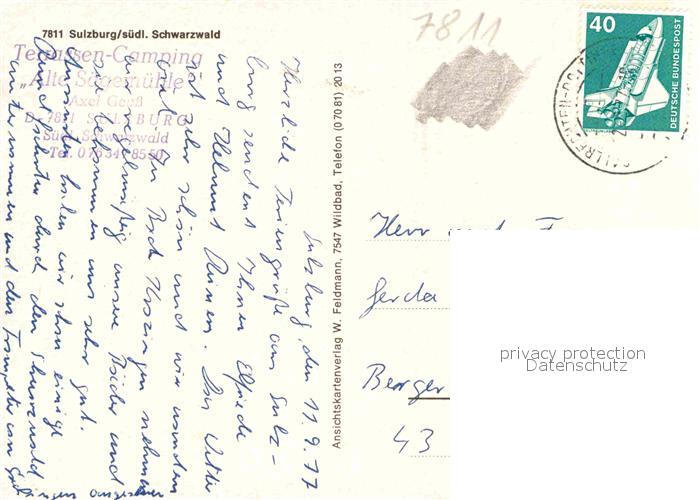 7811 Sulzburg/südl. Schwarzwald
Terrassen-Camping
„Alte Sägemühle"
Axel Geuß
D-7811 SULZBURG
Südl. Schwarzwald
Tel. 07634/8550
7811
40
DEUTSCHE BUNDESPOST
Ansichtskartenverlag W. Feldmann, 7547 Wildbad, Telefon (0 70 81) 20 13
Sulzburg, den 11.9.77
Herzliche Feriengrüße aus Sulz-
burg sendet Ihnen Elfriede
und Helmut Das Wetter
ist sehr schön und wir wandern
sehr In Bad Krozingen nehmen
wir regelmäßig unsere Bäder und
bekommen uns sehr gut.
haben wir schon einige
durch den Schwarzwald
unternommen und den Trompeter von Säk-
kingen angesehen
Herr und F
Gerda
Berger
43
privacy protection
Datenschutz